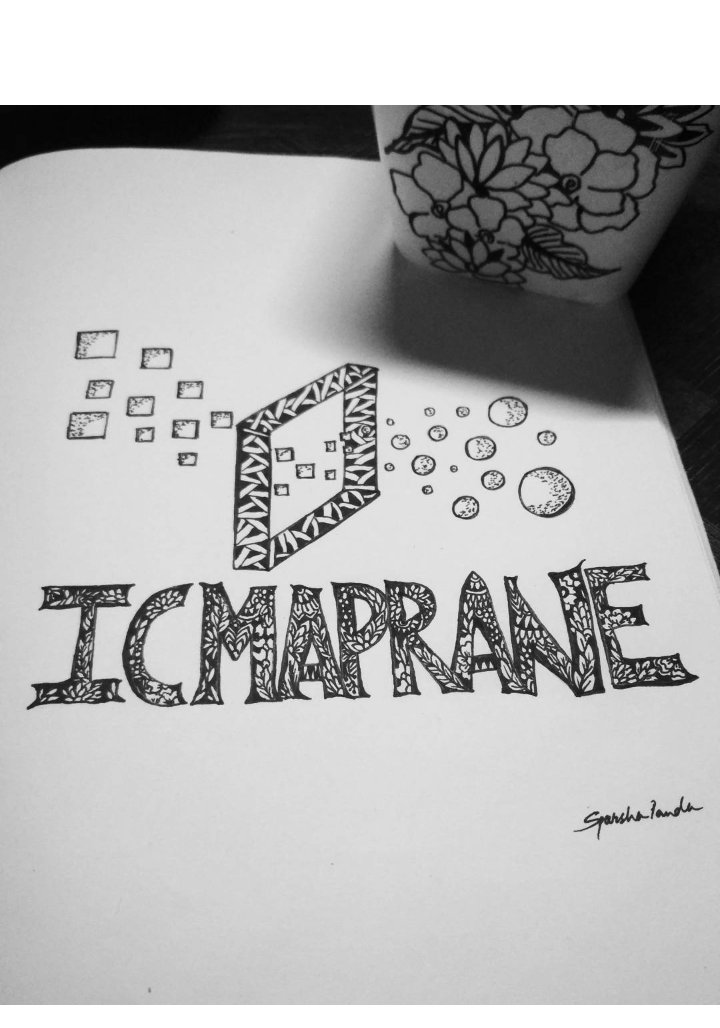 ICMAPRANE
Sparsha Panda